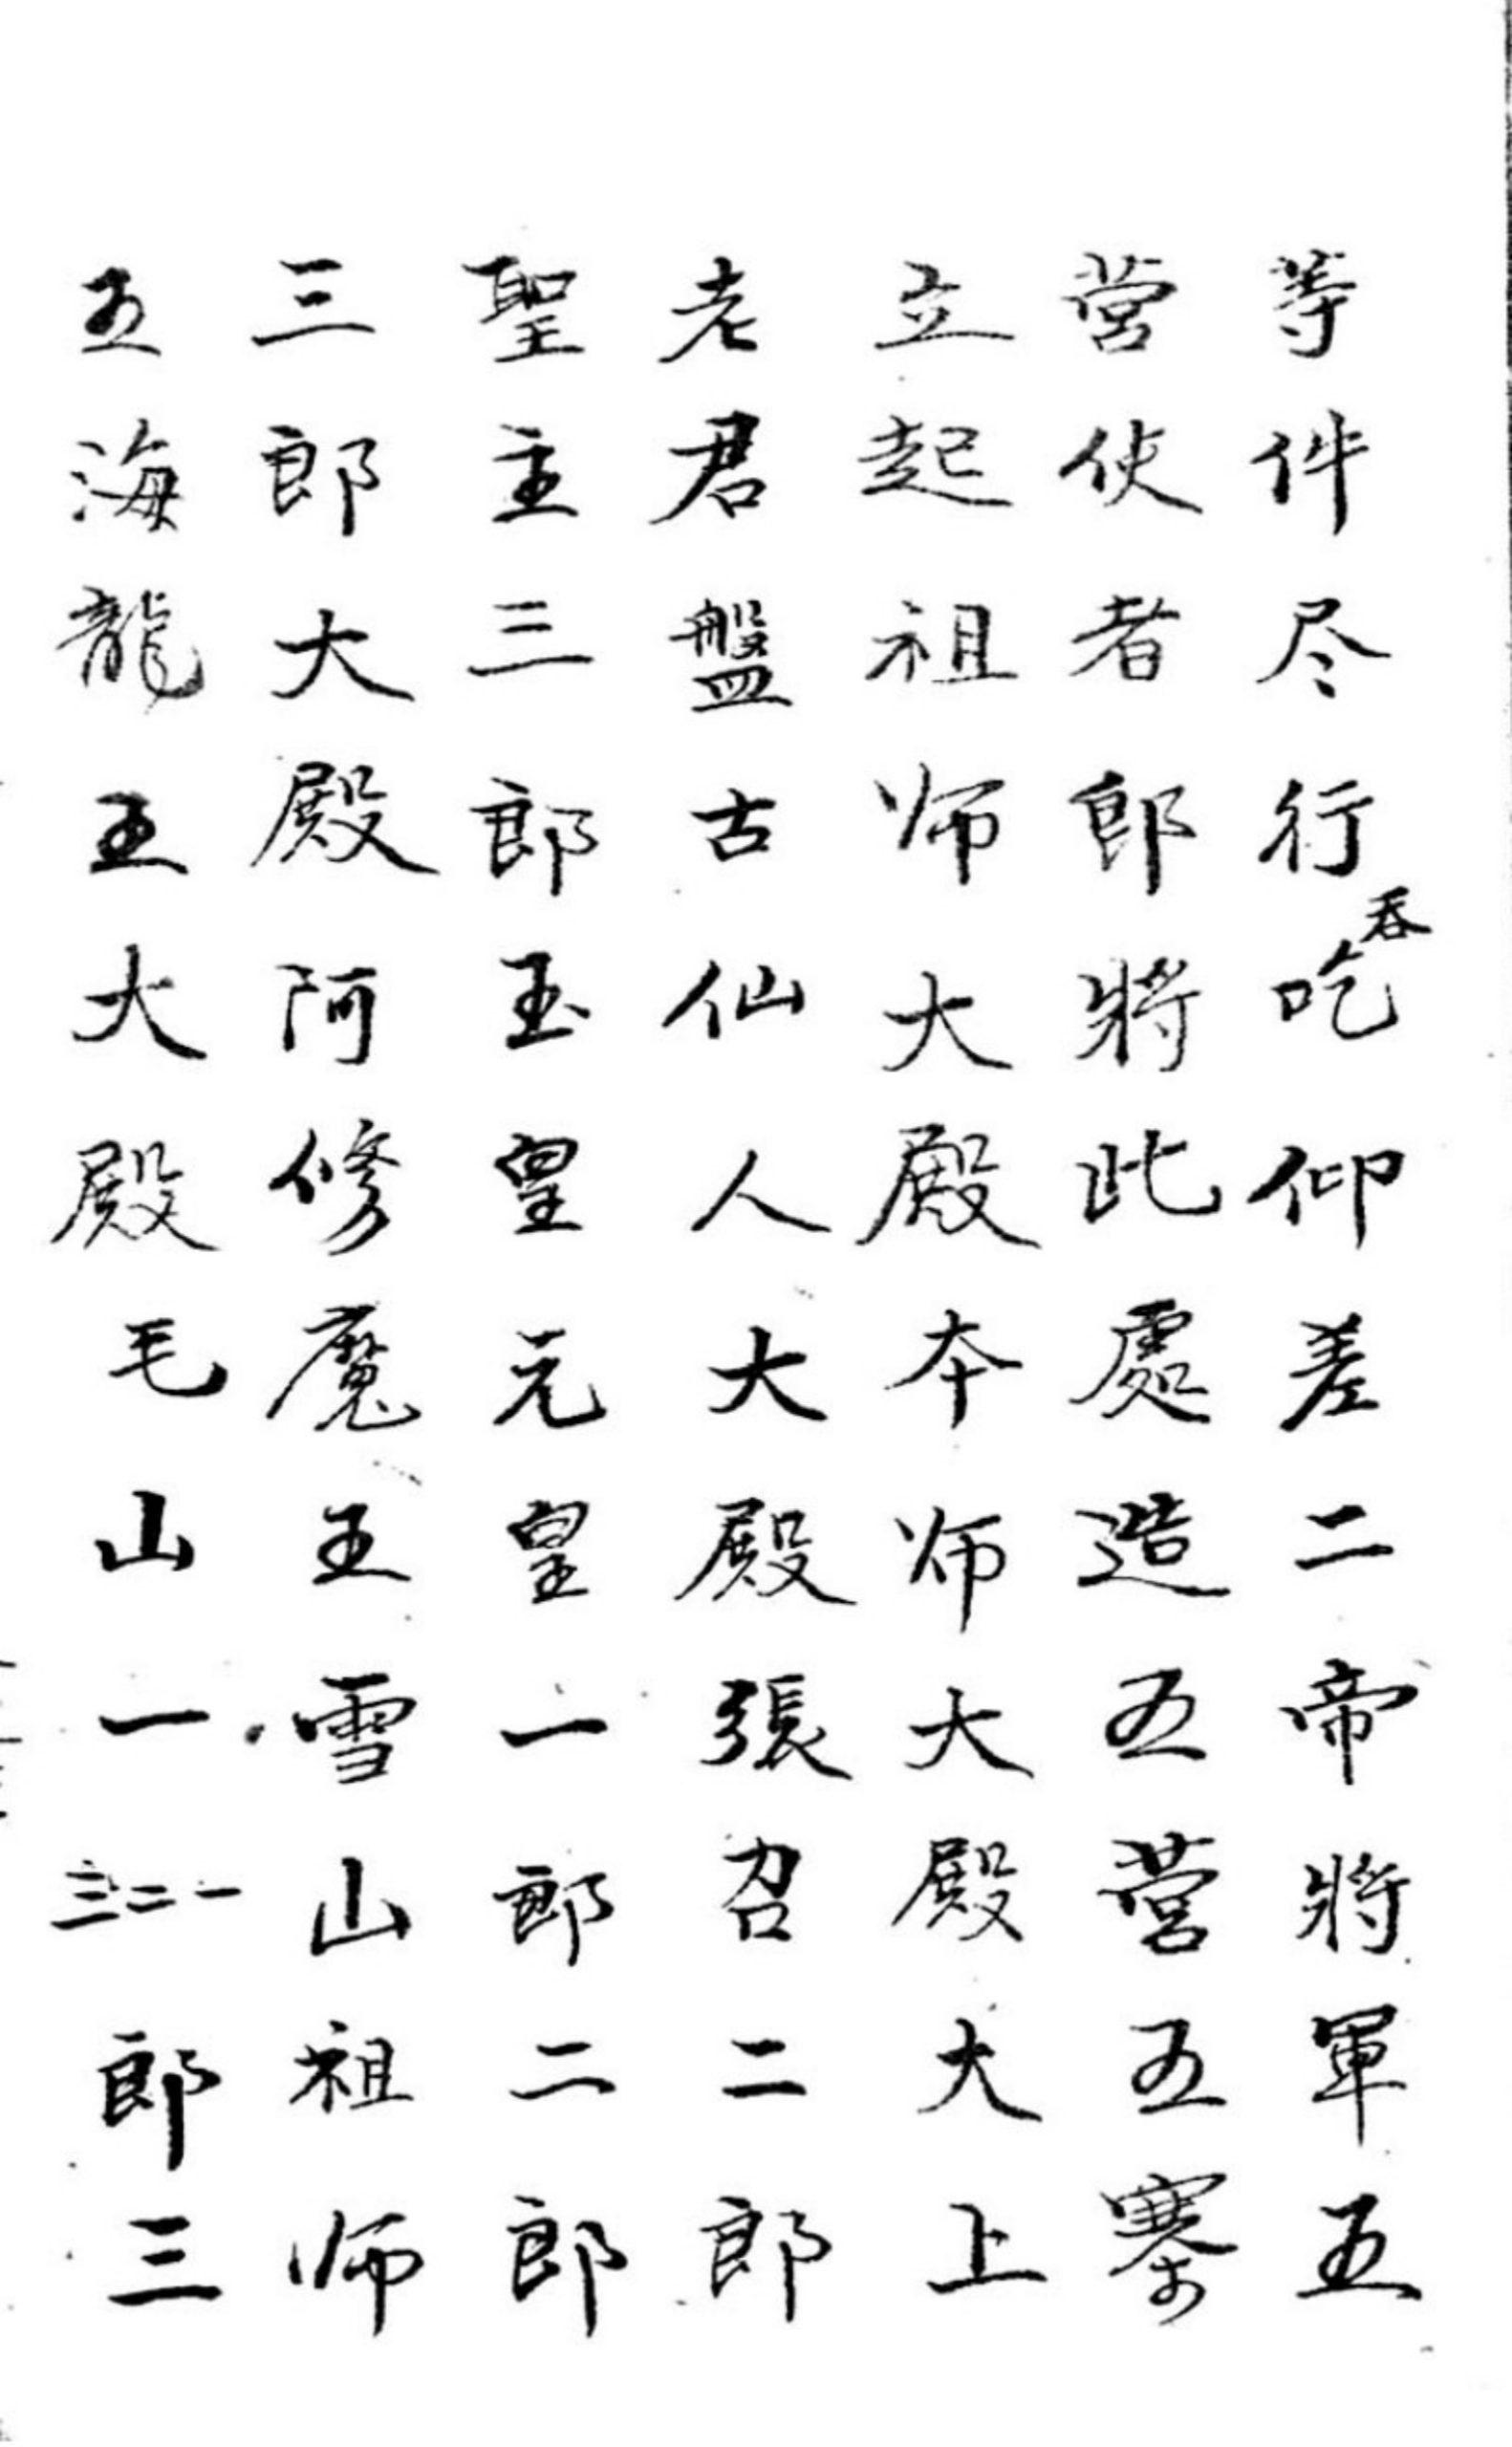 等件尽行吞吃仰差二帝將軍五
营伕者郎將此處造五营五寨
立起祖师大殿本师大殿大上
老君盤古仙人大殿張召二郎
聖主三郎玉皇元皇一郎二郎
三郎大殿阿修魔王雪山祖师
五海龍王大殿毛山一一二三郎三